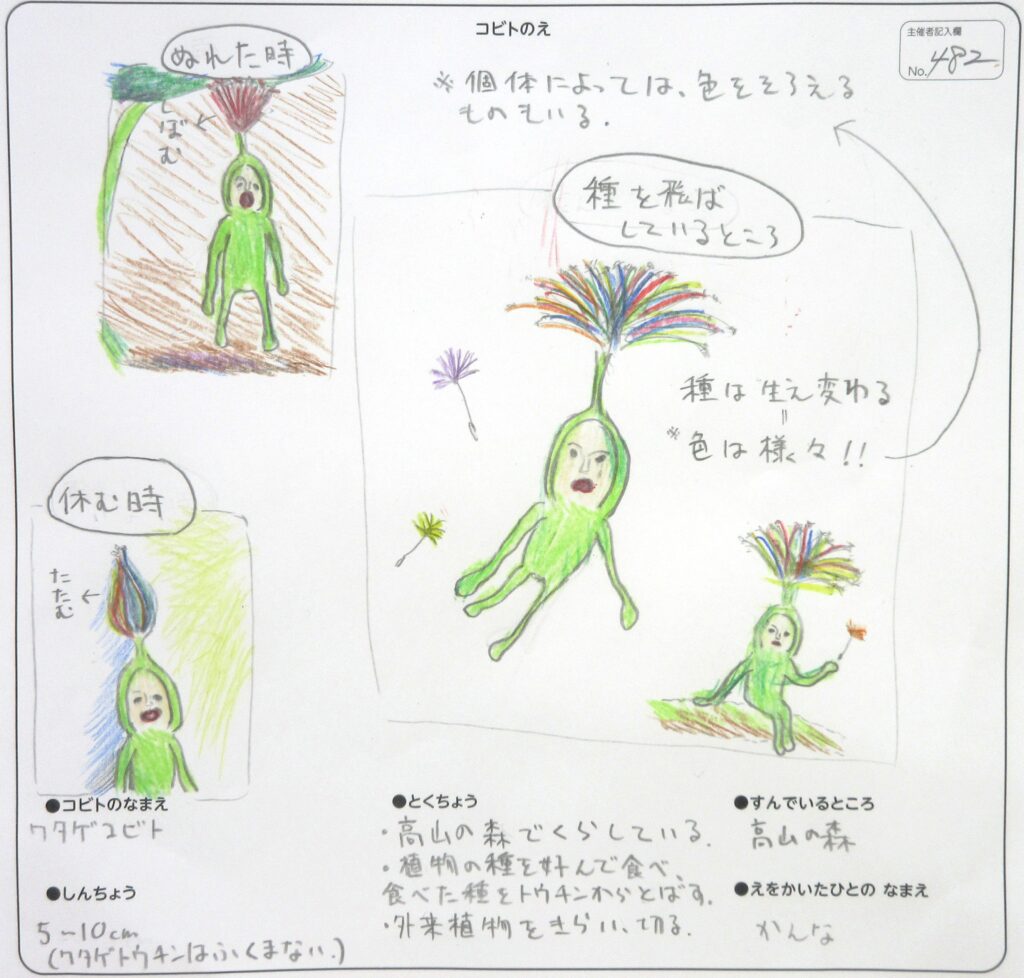 コビトのえ
主催者記入欄
No. 482
ぬれた時
しぼむ
※個体によっては、色をそろえる
ものもいる.
種を飛ば
しているところ
種は生え変わる
※色は様々!!
休む時
たたむ
●コビトのなまえ
ワタゲコビト
●しんちょう
5~10cm
(ワタゲトウチンはふくまない.)
●とくちょう
・高山の森でくらしている.
・植物の種を好んで食べ、
食べた種をトウチンからとばす.
・外来植物をきらい、切る.
●すんでいるところ
高山の森
●えをかいたひとの なまえ
かんな